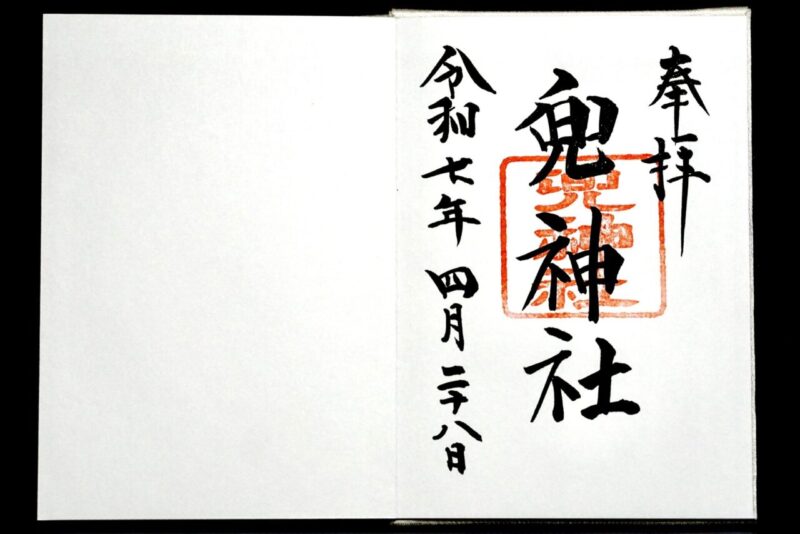 奉拝
兜神社
兜神社
令和七年四月二十八日